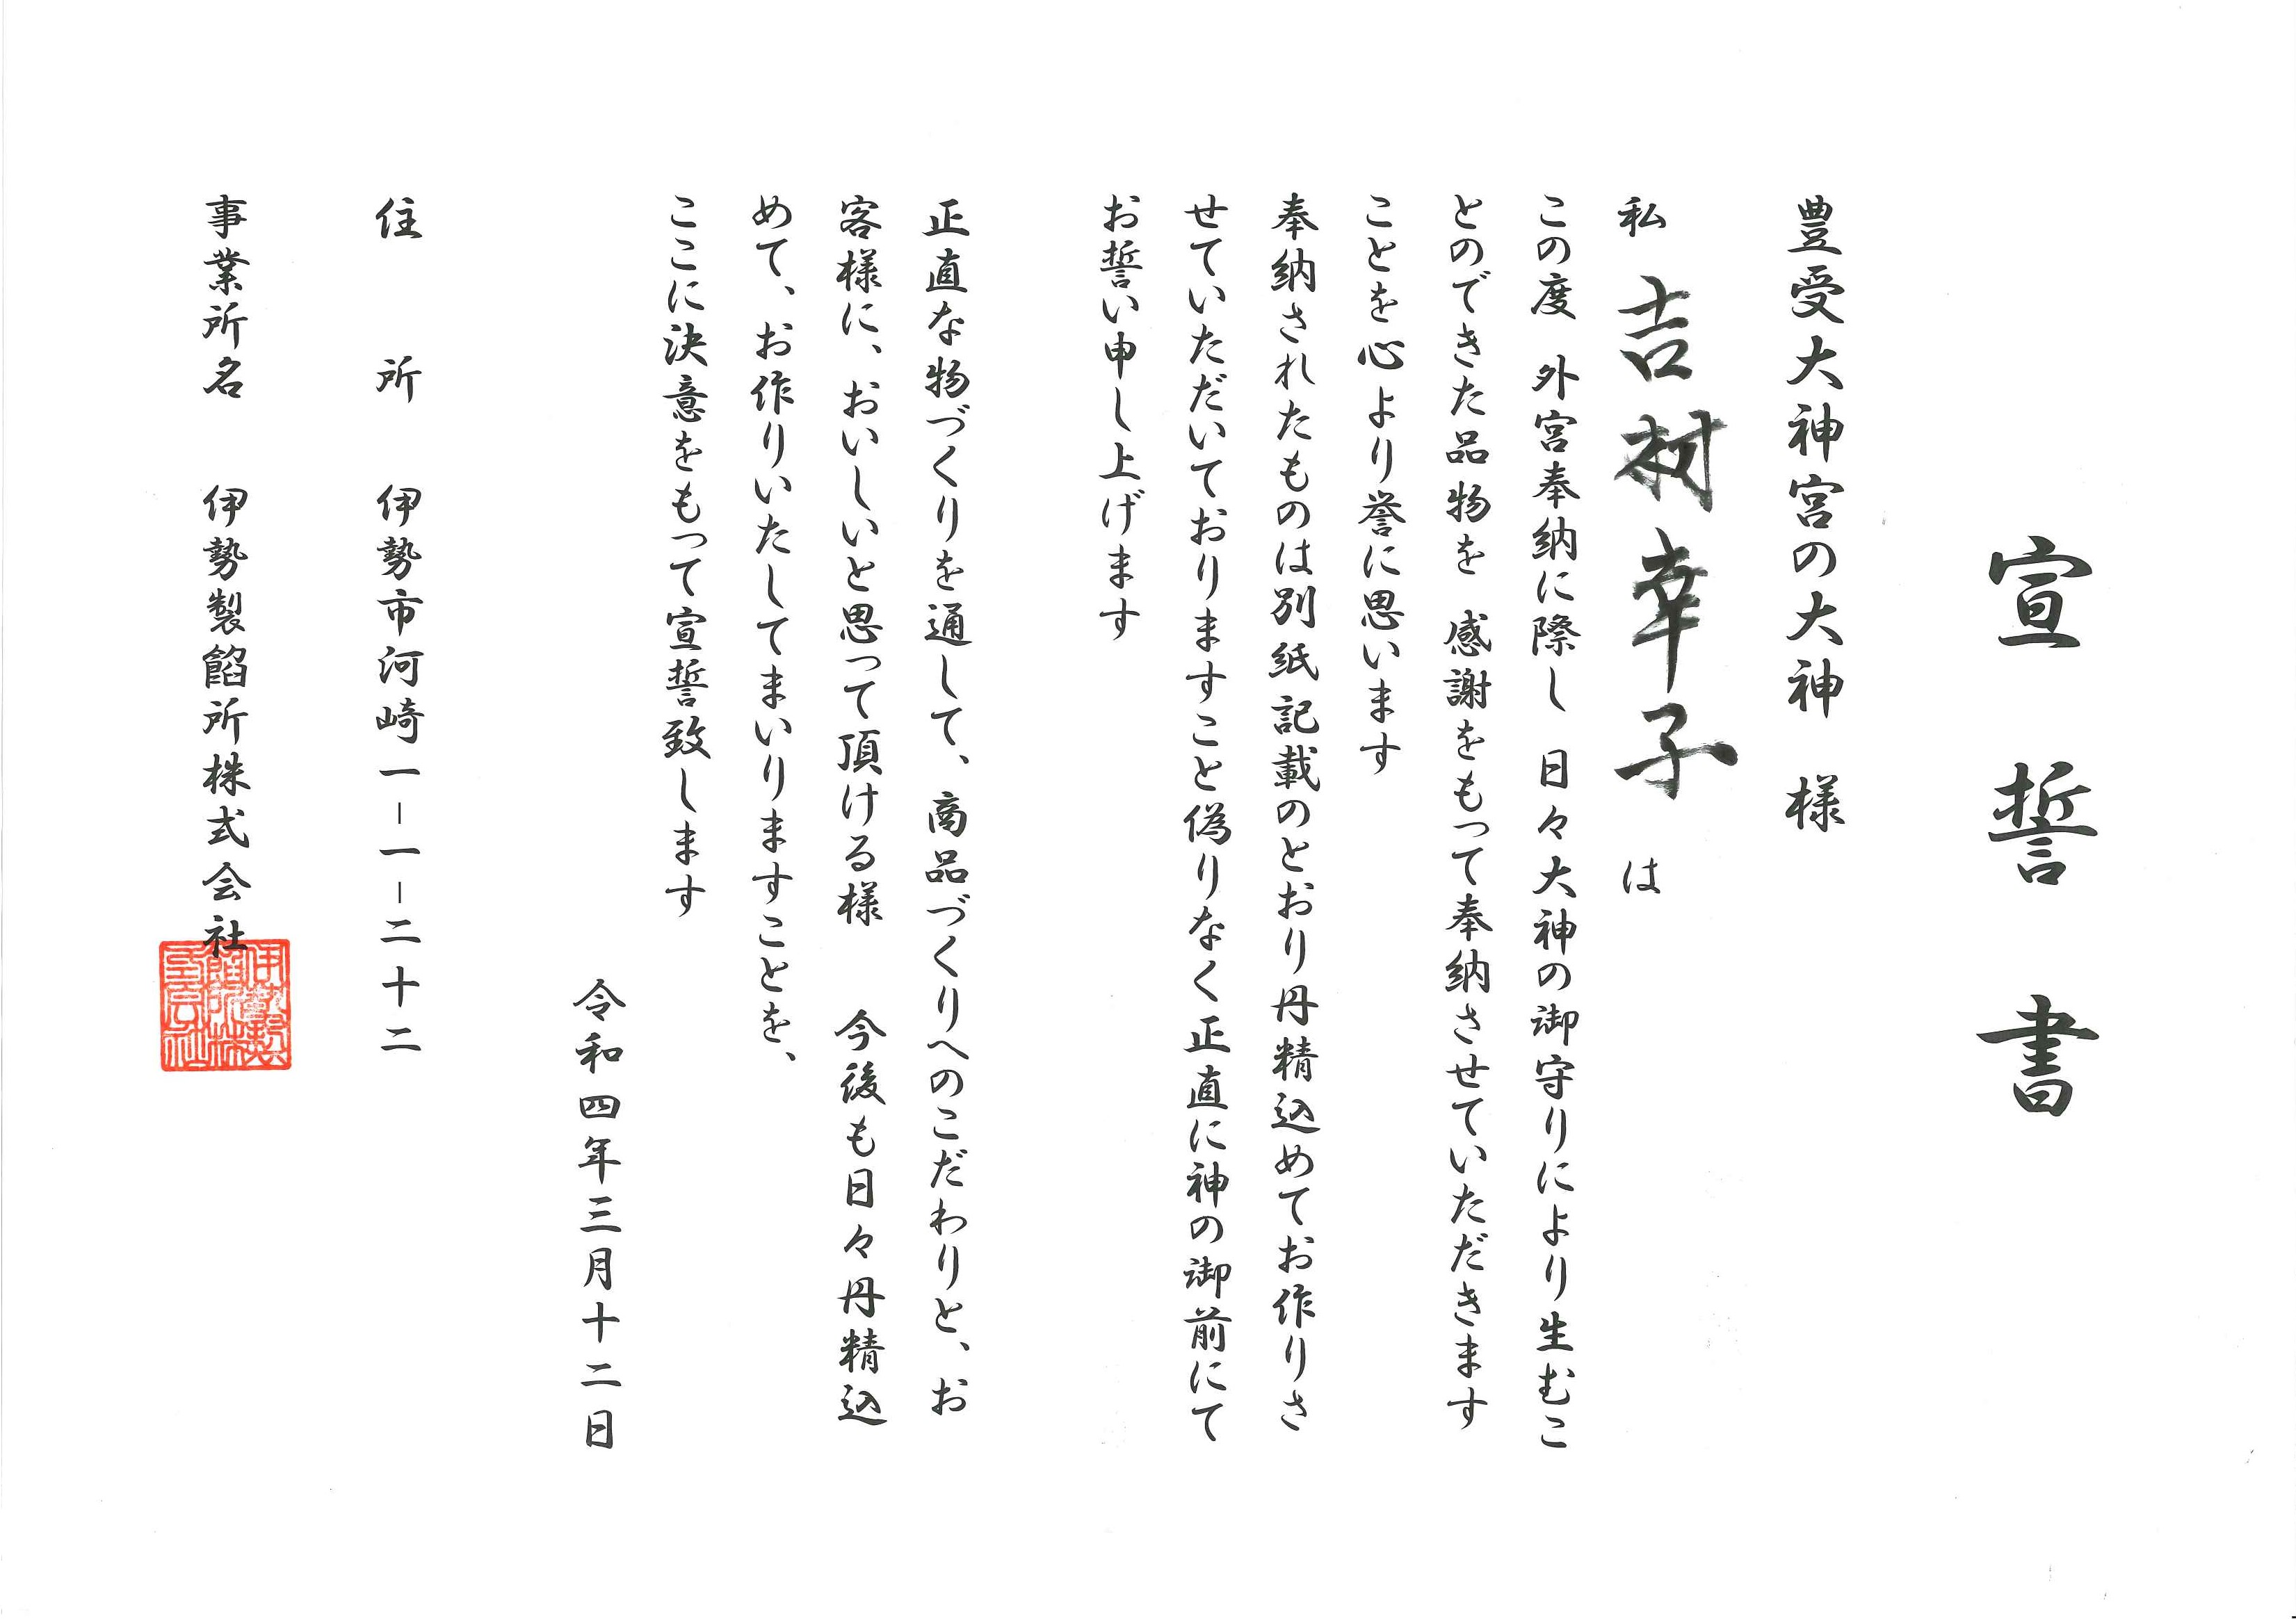 宣誓書
豊受大神宮の大神　様
私　吉村幸子　は
この度　外宮奉納に際し　日々大神の御守りにより生むこ
とのできた品物を　感謝をもって奉納させていただきます
ことを心より誉に思います
奉納されたものは別紙記載のとおり丹精込めてお作りさ
せていただいておりますこと偽りなく正直に神の御前にて
お誓い申し上げます
正直な物づくりを通して、商品づくりへのこだわりと、お
客様に、おいしいと思って頂ける様　今後も日々丹精込
めて、お作りいたしてまいりますことを、
ここに決意をもって宣誓致します
令和四年三月十二日
住　所　伊勢市河崎一－一－二十二
事業所名　伊勢製餡所株式会社